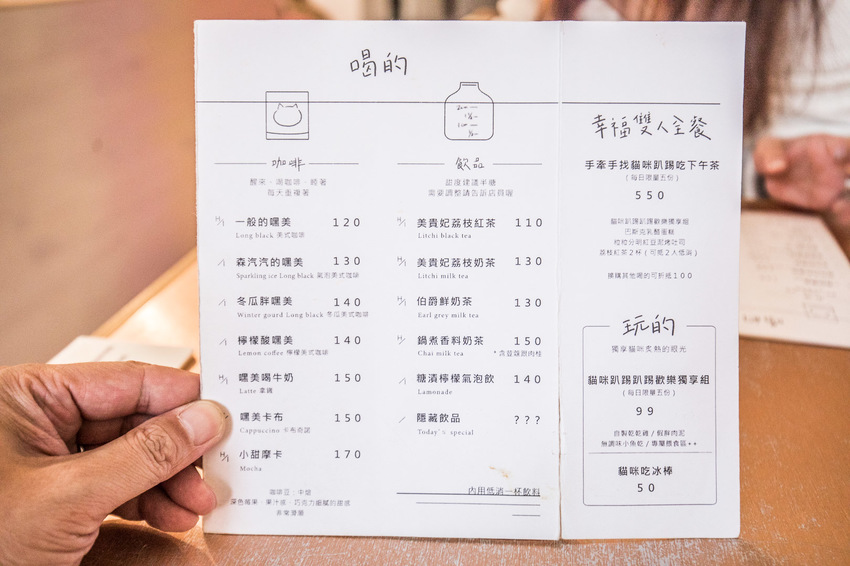 喝的
咖啡
醒來、喝咖啡、睡著
每天重複著
H/I 一般的嘿美 120
Long black 美式咖啡
I 森汽汽的嘿美 130
Sparkling ice Long black 氣泡美式咖啡
I 冬瓜胖嘿美 140
Winter gourd Long black 冬瓜美式咖啡
I 檸檬酸嘿美 140
Lemon coffee 檸檬美式咖啡
H/I 嘿美喝牛奶 150
Latte 拿鐵
嘿美卡布 150
Cappuccino 卡布奇諾
H/I 小甜摩卡 170
Mocha
咖啡豆:中焙
深色莓果、果汁感、巧克力細膩的甜感
非常滑順
飲品
甜度建議半糖
需要調整請告訴店員喔
H/I 美貴妃荔枝紅茶 110
Litchi black tea
H/I 美貴妃荔枝奶茶 130
Litchi milk tea
H/I 伯爵鮮奶茶 130
Earl grey milk tea
H/I 鍋煮香料奶茶 150
Chai milk tea *含荳蔻跟肉桂
I 糖漬檸檬氣泡飲 140
Lamonade
隱藏飲品 ???
Today's special
內用低消一杯飲料
幸福雙人全餐
手牽手找貓咪趴踢吃下午茶
(每日限量五份)
550
貓咪趴踢趴踢歡樂獨享組
巴斯克乳酪蛋糕
粒粒分明紅豆泥烤吐司
荔枝紅茶2杯(可抵2人低消)
換購其他喝的可折抵100
玩的
獨享貓咪炙熱的眼光
貓咪趴踢趴踢歡樂獨享組
(每日限量五份)
99
自製乾乾雞/假鮮肉泥
無調味小魚乾/專屬餵食區++
貓咪吃冰棒
50